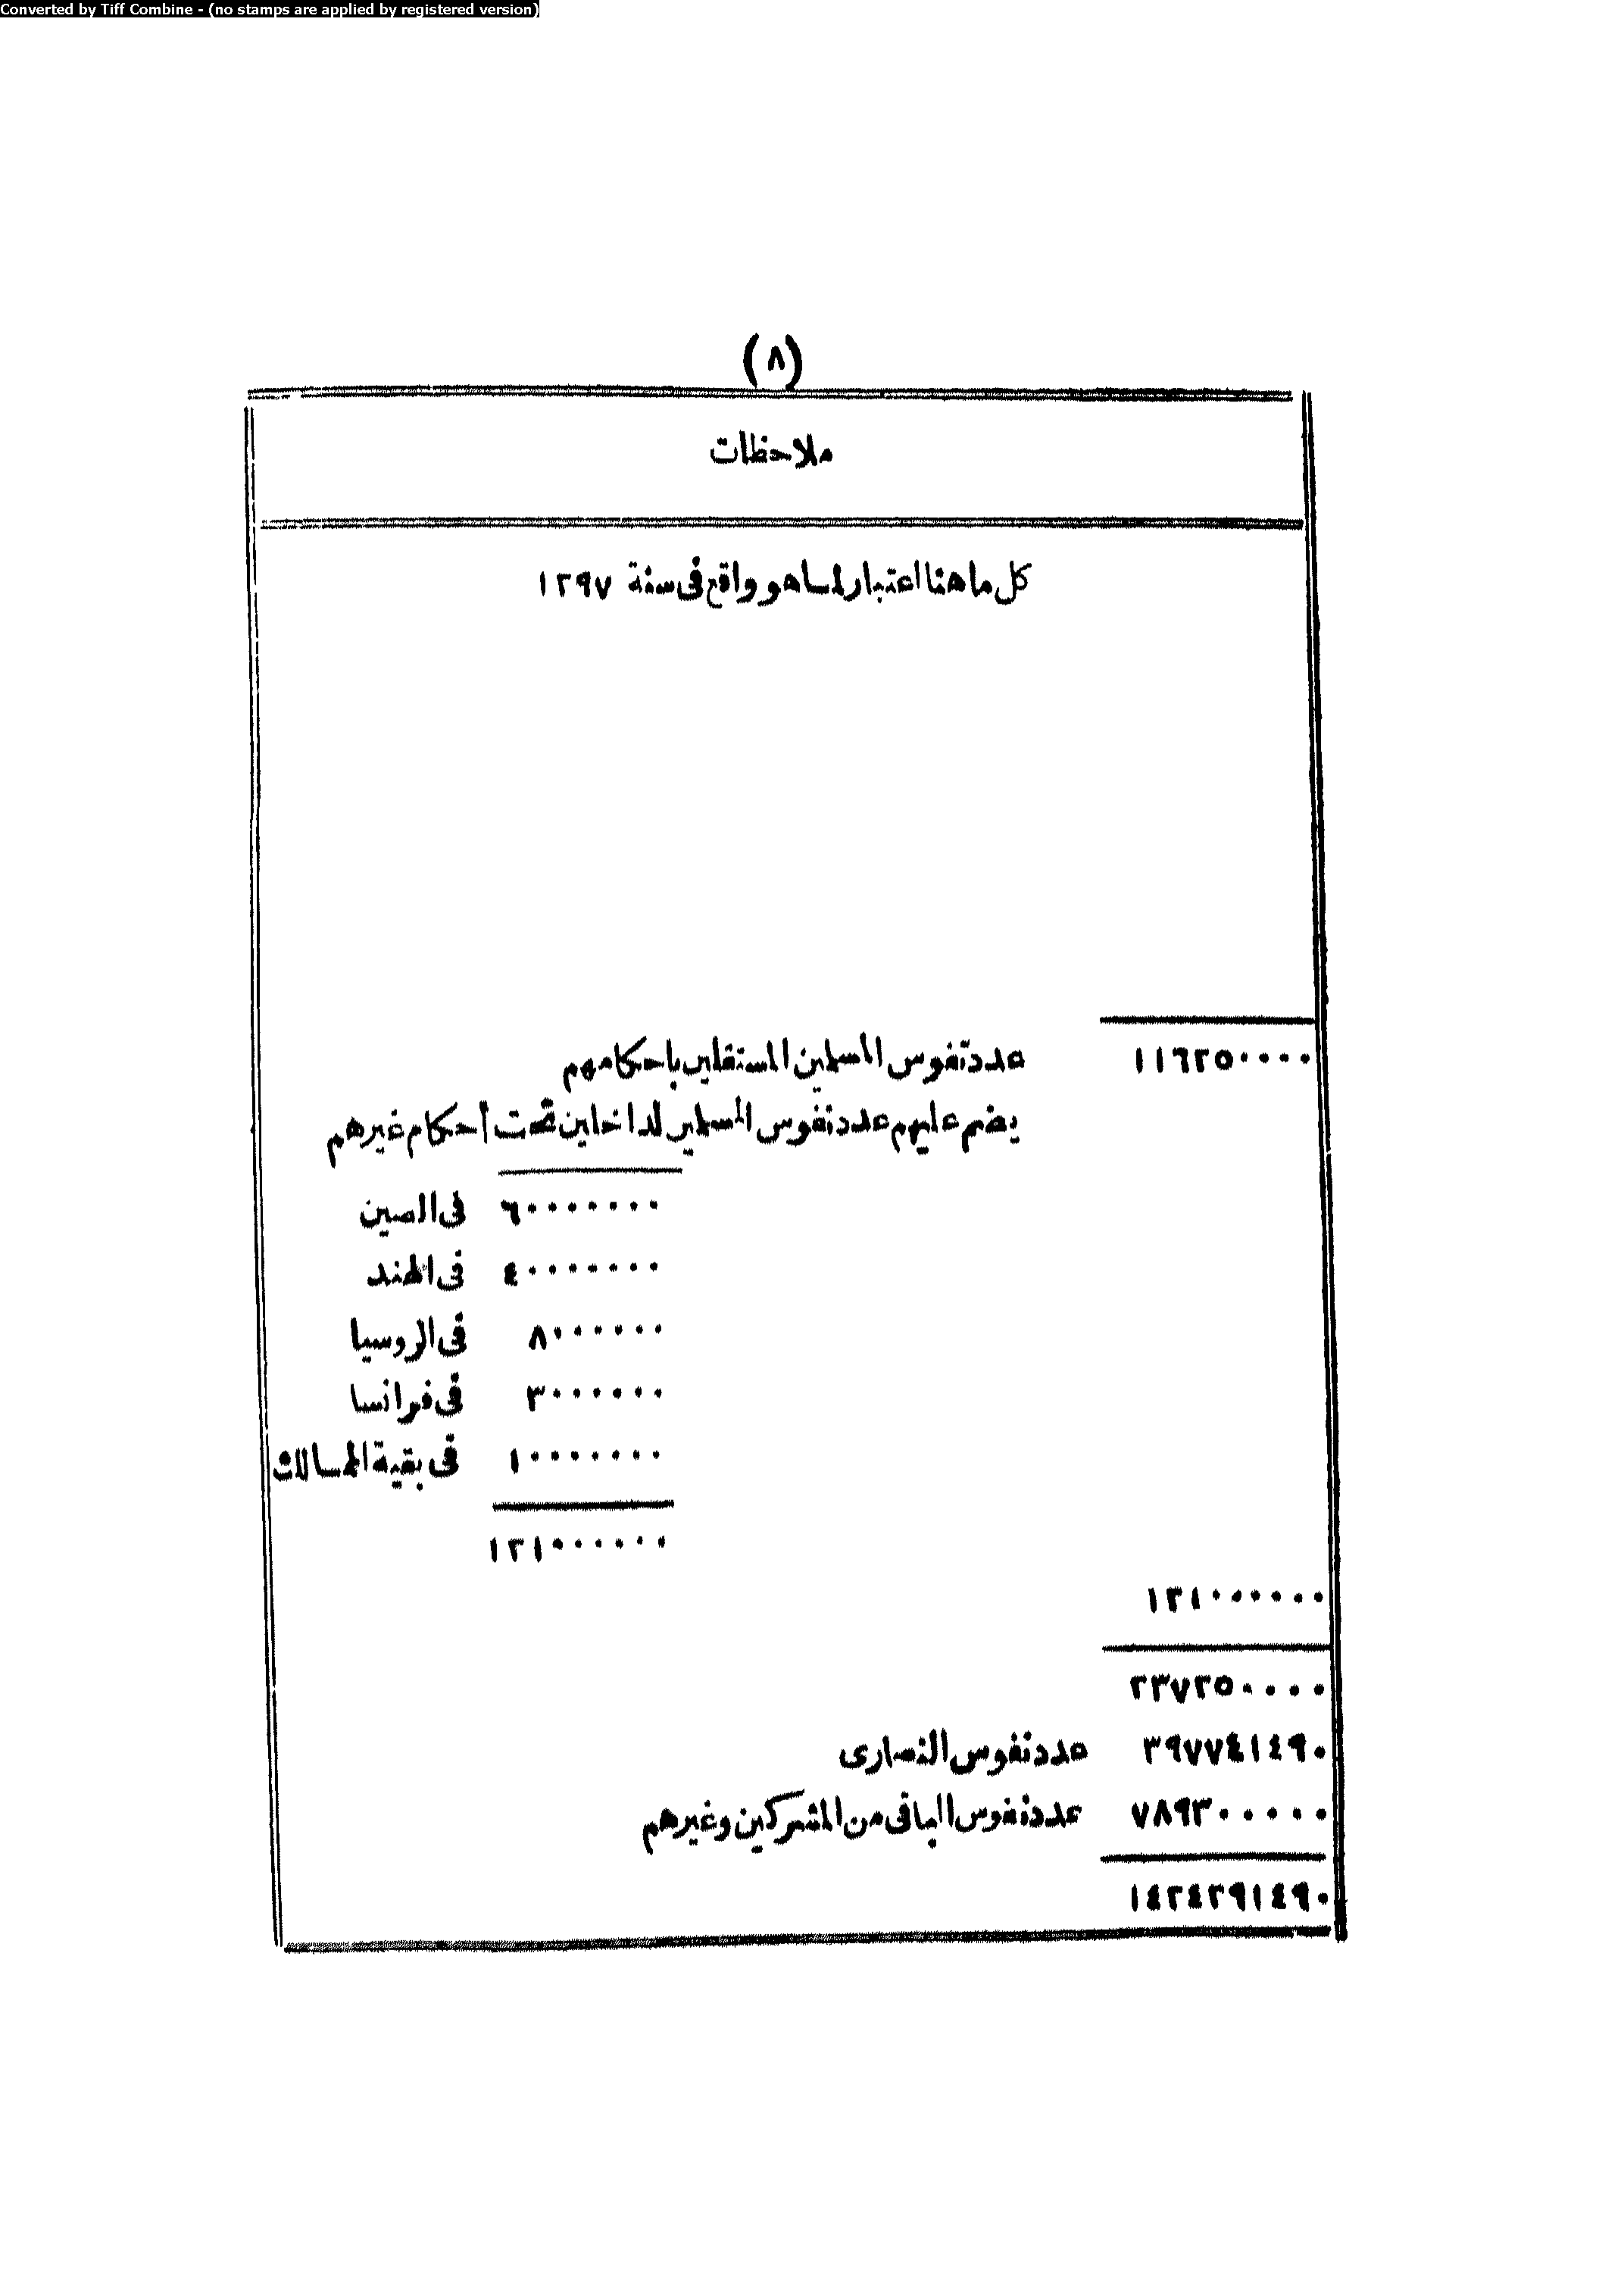 Converted by Tiff Combine - (no stamps are applied by registered version)
(٨)
ملاحظات
كل ما هنا اعتبار لما هو واقع في سنة ١٢٩٧
١١٦٢٥٠٠٠٠ عدد نفوس المسلمين المستقلين باحكامهم
يضم عليهم عدد نفوس المسلمين لداخلين تحت أحكام غيرهم
٦٠٠٠٠٠٠٠ في الصين
٤٠٠٠٠٠٠٠ في الهند
٨٠٠٠٠٠٠ في الروسيا
٣٠٠٠٠٠٠ في فرانسا
١٠٠٠٠٠٠٠ في بقية الممالك
١٢١٠٠٠٠٠٠
١٢١٠٠٠٠٠٠
٢٣٧٢٥٠٠٠٠
٣٩٧٧٤١٤٩٠ عدد نفوس النصارى
٧٨٩٣٠٠٠٠٠ عدد نفوس الباقي من المشركين وغيرهم
١٤٢٤٢٩١٤٩٠